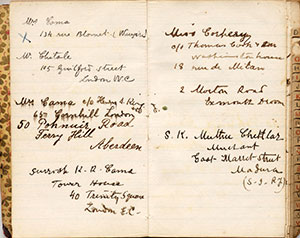 Mrs Cama
x 134 rue Blomet
W. Chitale
115 Guilford Street
London W.C
Mrs Cama c/o Henry S. King
65 Cornhill London
50 Road
Ferry Hill
Aberdeen
K. R. Cama
Tower House
40 Trinity Square
London E.C.
Miss
c/o Thomas Cook & Son
Washington house
18 rue de Milan
2 Moton Road
Exmouth Devon
S. K. Muttu Chettiar
Merchant
East Marret Street
Madura
(S. I. Ry)